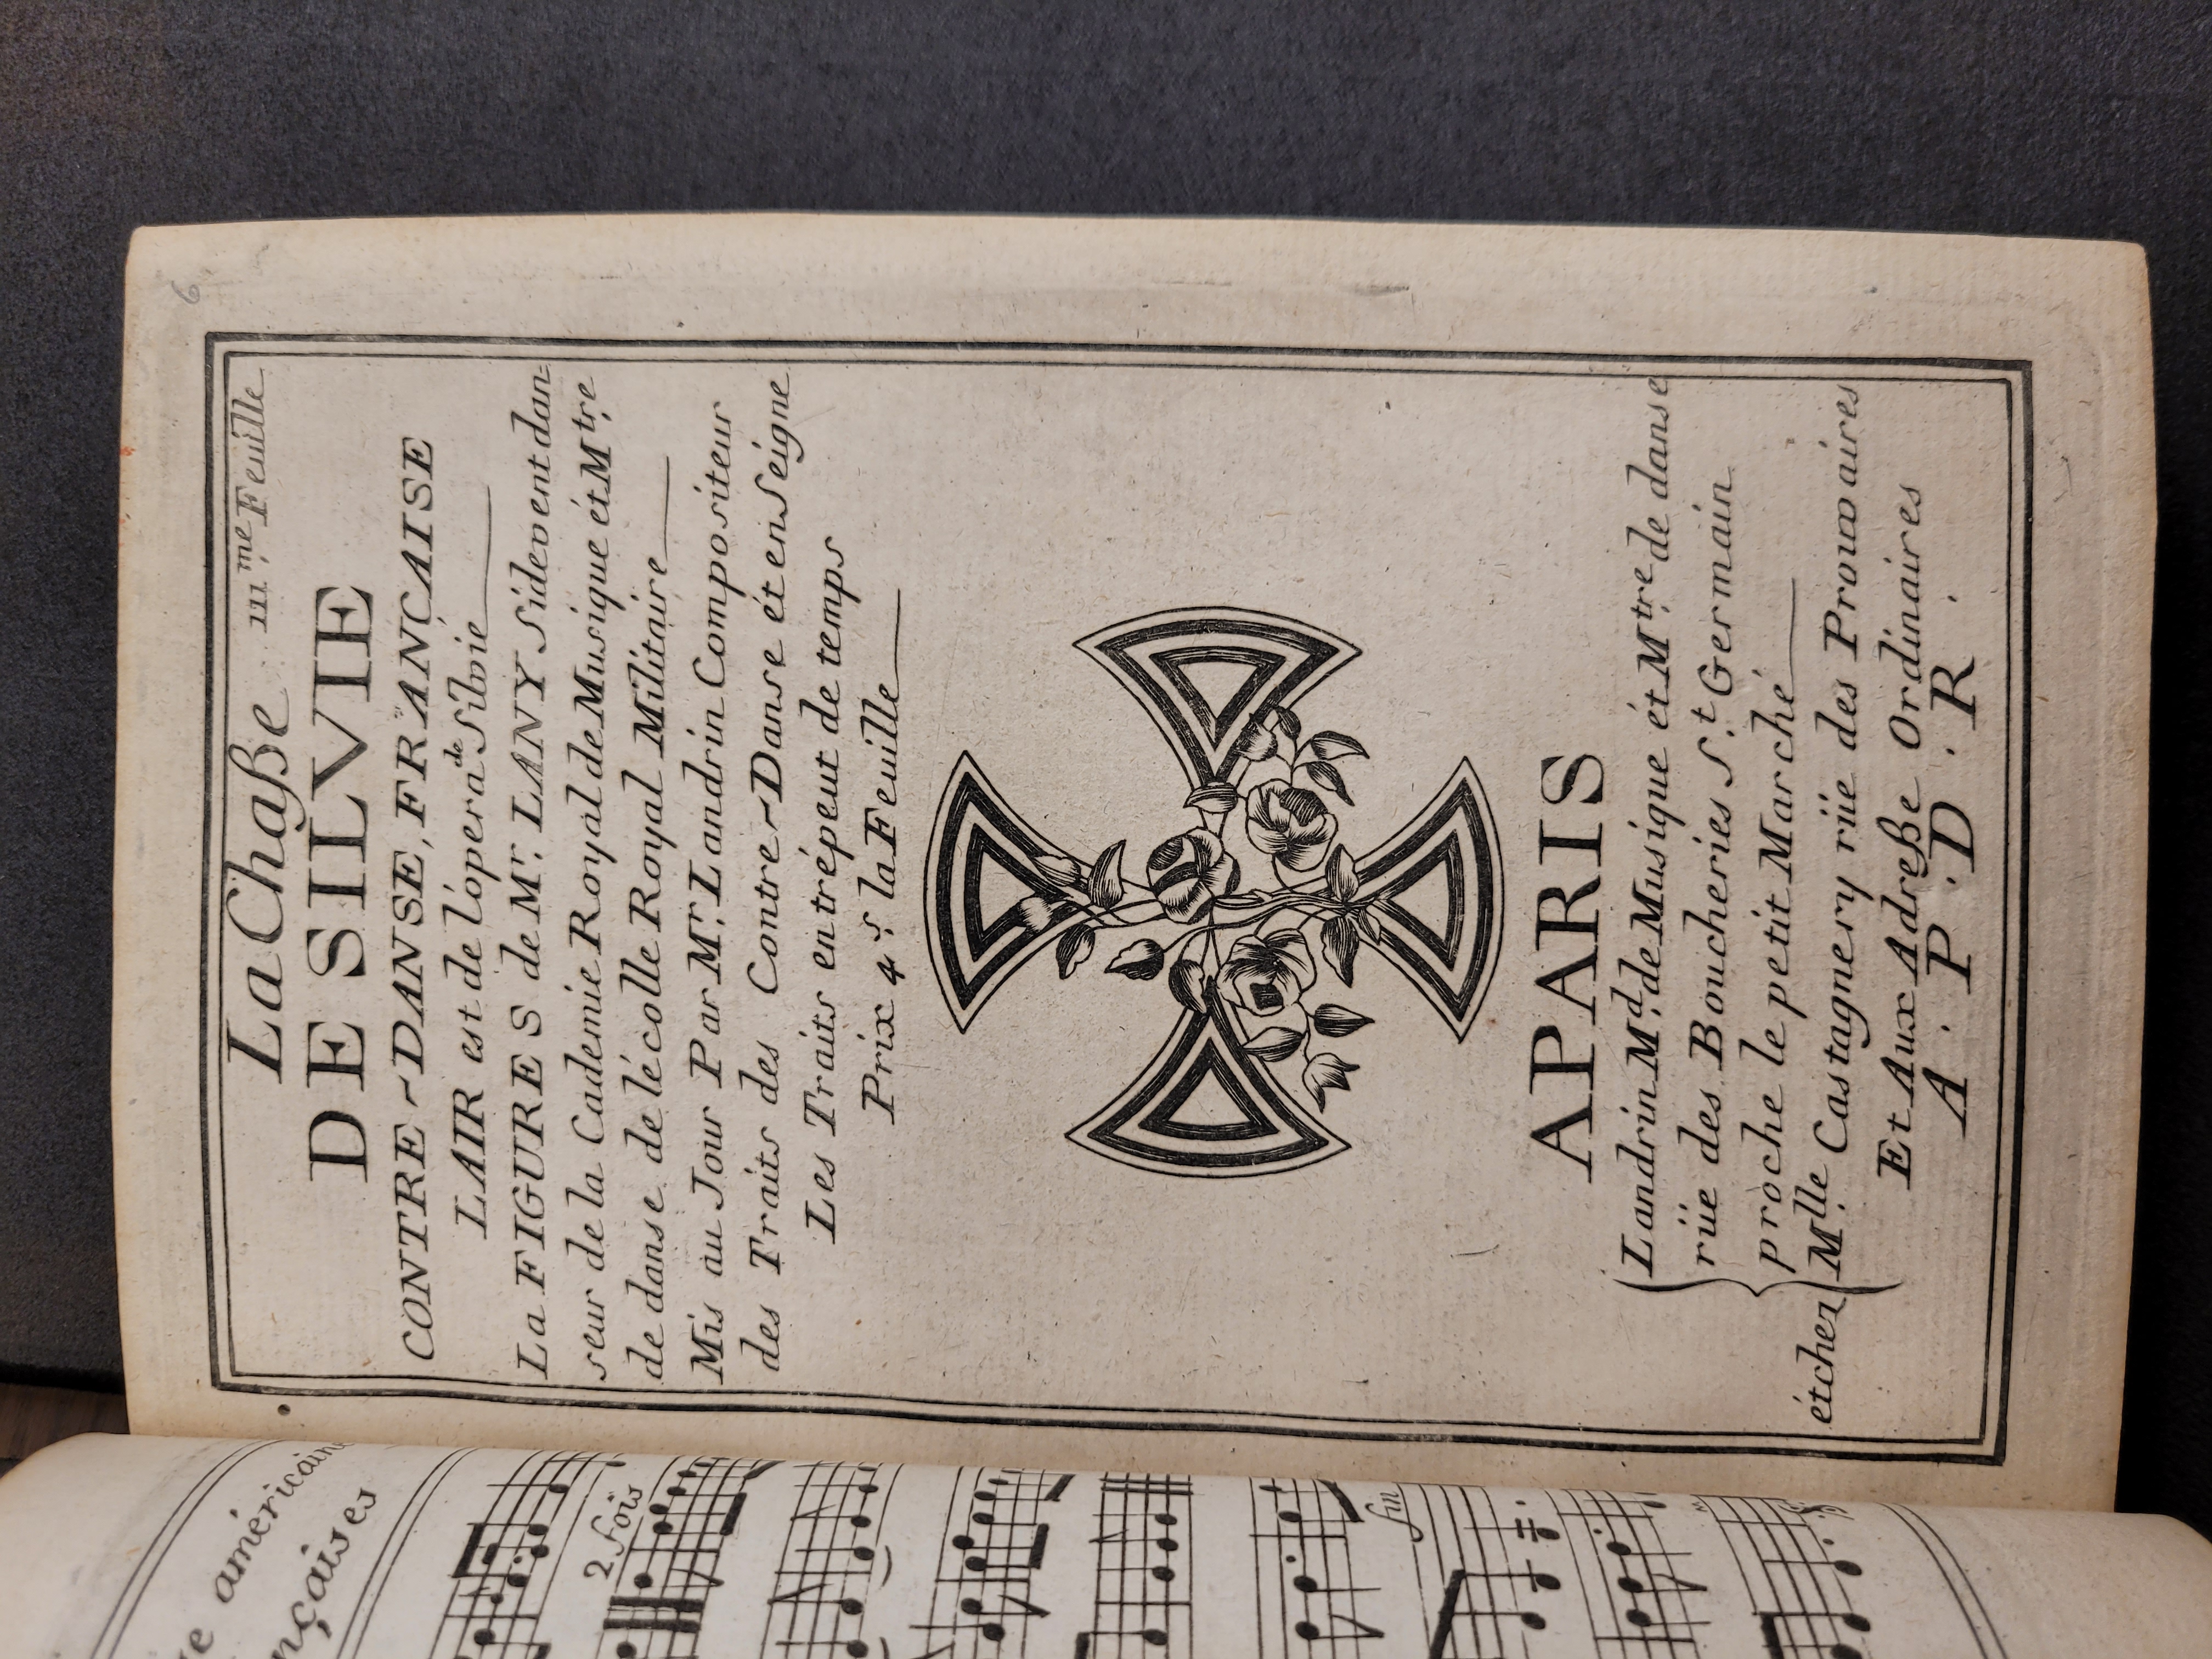 6
La Chaße mme Feuille
DE SILVIE
CONTRE~DANSE, FRANCAISE
LAIR est de lópera de Silvie
La FIGURES de Mr. LANY Sidevent dan
seur de la Cademie Royal de Musique ét Mtre
de danse de lécolle Royal Militaire
Mis au Jour Par Mr. Landrin Compositeur
des Traits des Contre~Danse ét enSeigne
Les Traits en trépeut de temps
Prix 4 s. la Feuille
APARIS
Landrin Md. de Musique ét Mtre de danse
rüe des Boucheries St. Germain
proche le petit Marché
étchez Mlle Castagnery rüe des Prouvaires
Et Aux Adreße Ordinaires
A . P . D . R .
américaine
nçaises
2 fois
fin